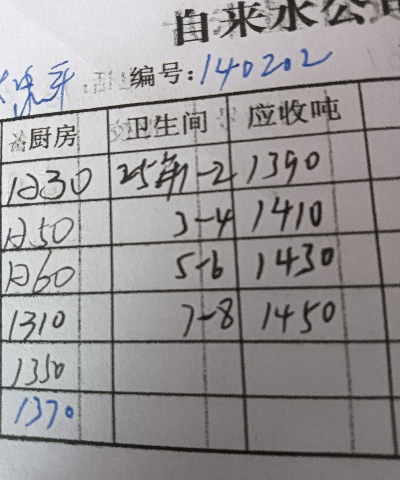 自来水公
编号:140202
厨房 卫生间 应收吨
1230 25年1-2 1390
1250 3-4 1410
1260 5-6 1430
1310 7-8 1450
1350
1370